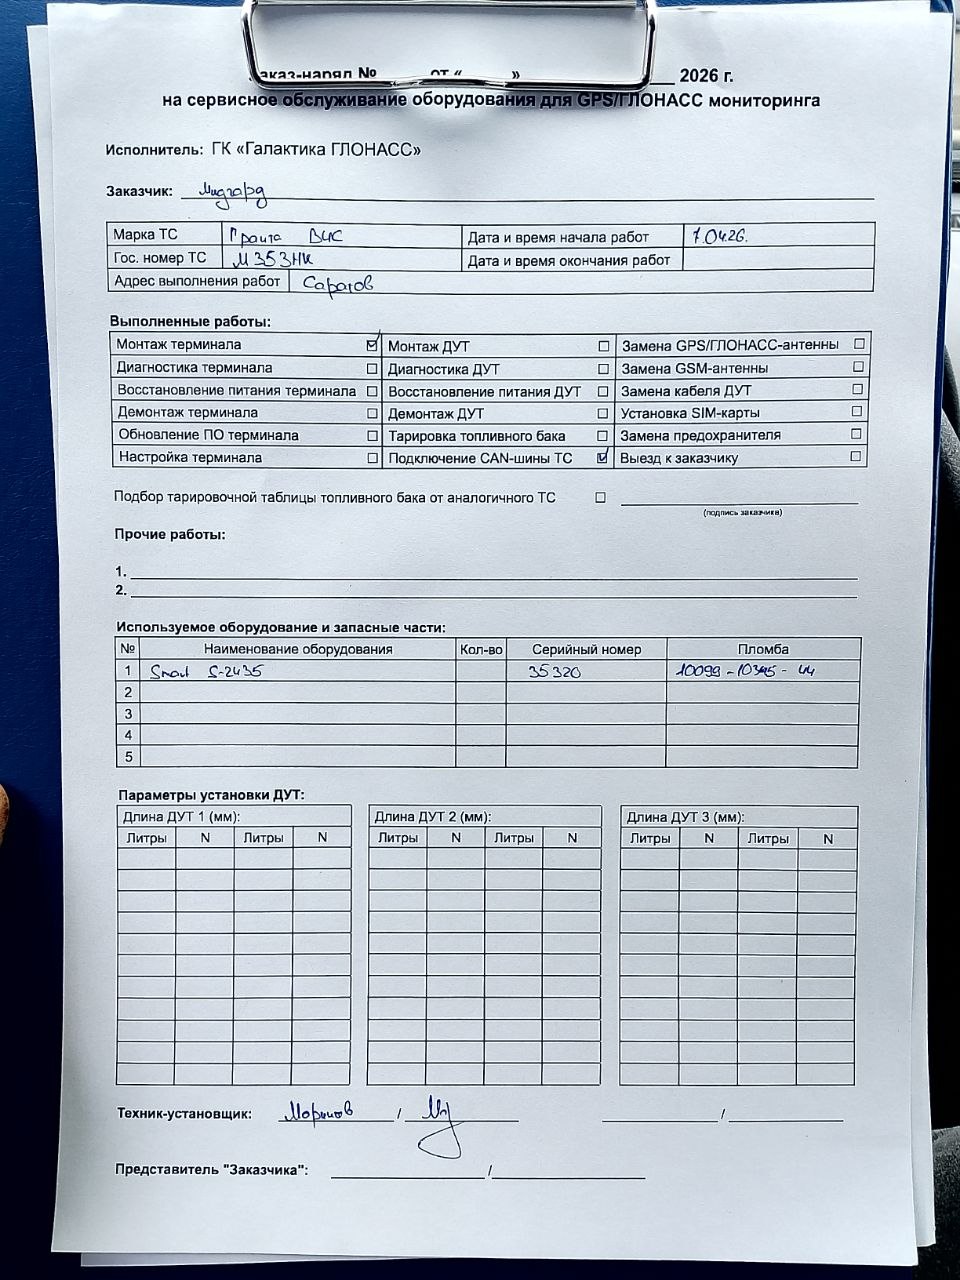 Заказ-наряд № от « » 2026 г.
на сервисное обслуживание оборудования для GPS/ГЛОНАСС мониторинга
Исполнитель: ГК «Галактика ГЛОНАСС»
Заказчик: Мидгард
Марка ТС Гранта ВИС Дата и время начала работ 7.04.26.
Гос. номер ТС М353НК Дата и время окончания работ
Адрес выполнения работ Саратов
Выполненные работы:
Монтаж терминала ☑ Монтаж ДУТ ☐ Замена GPS/ГЛОНАСС-антенны ☐
Диагностика терминала ☐ Диагностика ДУТ ☐ Замена GSM-антенны ☐
Восстановление питания терминала ☐ Восстановление питания ДУТ ☐ Замена кабеля ДУТ ☐
Демонтаж терминала ☐ Демонтаж ДУТ ☐ Установка SIM-карты ☐
Обновление ПО терминала ☐ Тарировка топливного бака ☐ Замена предохранителя ☐
Настройка терминала ☐ Подключение CAN-шины ТС ☑ Выезд к заказчику ☐
Подбор тарировочной таблицы топливного бака от аналогичного ТС ☐
(подпись заказчика)
Прочие работы:
1.
2.
Используемое оборудование и запасные части:
№ Наименование оборудования Кол-во Серийный номер Пломба
1 Smart S-2435 35320 10099 - - 44
2
3
4
5
Параметры установки ДУТ:
Длина ДУТ 1 (мм): Длина ДУТ 2 (мм): Длина ДУТ 3 (мм):
Литры N Литры N Литры N Литры N Литры N Литры N
Техник-установщик: / /
Представитель "Заказчика": /